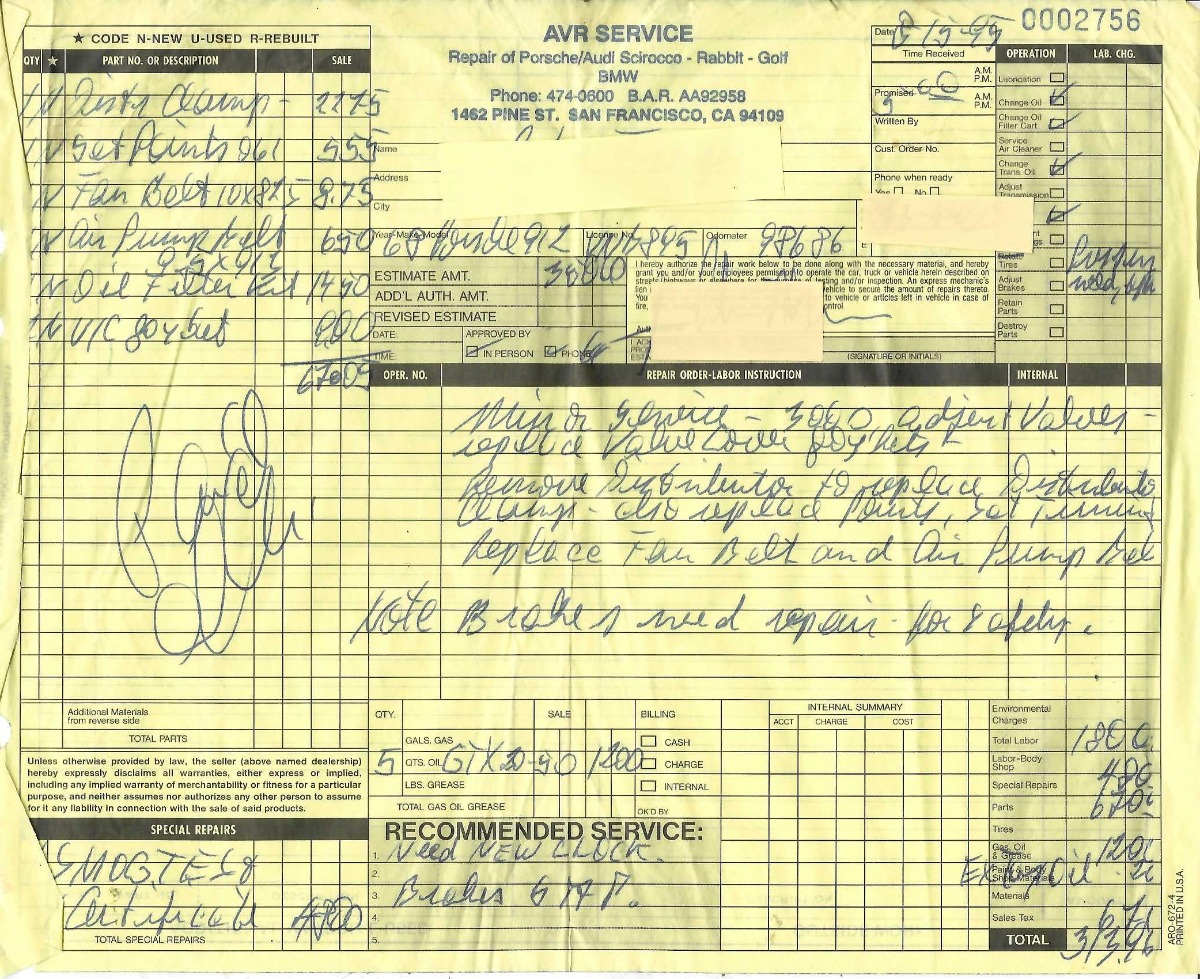 0002756
★ CODE N-NEW U-USED R-REBUILT
QTY ★ PART NO. OR DESCRIPTION SALE
1 N Distr Clamp - 2275
1 N Set Points 061 555
N Fan Belt 10x875 8.75
N Air Pump Belt 650
9.5 x 912
N Oil Filter 1450
N V/C gasket 900
6705
AVR SERVICE
Repair of Porsche/Audi Scirocco - Rabbit - Golf
BMW
Phone: 474-0600 B.A.R. AA92958
1462 PINE ST. SAN FRANCISCO, CA 94109
Name
Address
City
Year-Make-Model 68 Porsche 912 License No. Odometer 98686
ESTIMATE AMT.
ADD'L AUTH. AMT.
REVISED ESTIMATE
DATE: APPROVED BY
TIME: IN PERSON PHONE
I hereby authorize the repair work below to be done along with the necessary material, and hereby
grant you and/or your employees permission to operate the car, truck or vehicle herein described on
streets, highways or elsewhere for the purpose of testing and/or inspection. An express mechanic's
lien to vehicle to secure the amount of repairs thereto.
You to vehicle or articles left in vehicle in case of
fire, control
(SIGNATURE OR INITIALS)
Date 8-15-95
Time Received
A.M.
P.M.
Promised
A.M.
P.M.
Written By
Cust. Order No.
Phone when ready
Yes No
OPERATION LAB. CHG.
Lubrication
Change Oil
Change Oil
Filter Cart.
Service
Air Cleaner
Change
Trans. Oil
Adjust
Transmission
Rotate
Tires
Adjust
Brakes need
Retain
Parts
Destroy
Parts
OPER. NO. REPAIR ORDER-LABOR INSTRUCTION INTERNAL
Minor Service - 3000 adjust Valves -
replace Valve Cover gaskets -
Remove Distributor to replace Distributor
Clamp - also replace Points, Set Timing
Replace Fan Belt and Air Pump Bel
Note Brakes need repair - for safety.
Additional Materials
from reverse side
TOTAL PARTS
Unless otherwise provided by law, the seller (above named dealership)
hereby expressly disclaims all warranties, either express or implied,
including any implied warranty of merchantability or fitness for a particular
purpose, and neither assumes nor authorizes any other person to assume
for it any liability in connection with the sale of said products.
SPECIAL REPAIRS
SMOG TEST &
Certificate 4800
TOTAL SPECIAL REPAIRS
QTY. SALE BILLING
GALS. GAS CASH
5 QTS. OIL GTX 20-50 1200 CHARGE
LBS. GREASE INTERNAL
TOTAL GAS OIL GREASE OK'D BY
RECOMMENDED SERVICE:
1. Need NEW CLOCK.
2.
3. Brakes
4.
5.
INTERNAL SUMMARY
ACCT CHARGE COST
Environmental
Charges
Total Labor 1800
Labor-Body
Shop
Special Repairs 480
Parts 6705
Tires
Gas, Oil
& Grease 120
Paint & Body
Shop Materials
Materials
Sales Tax 671
TOTAL 313.96
ARO-672-4
PRINTED IN U.S.A.